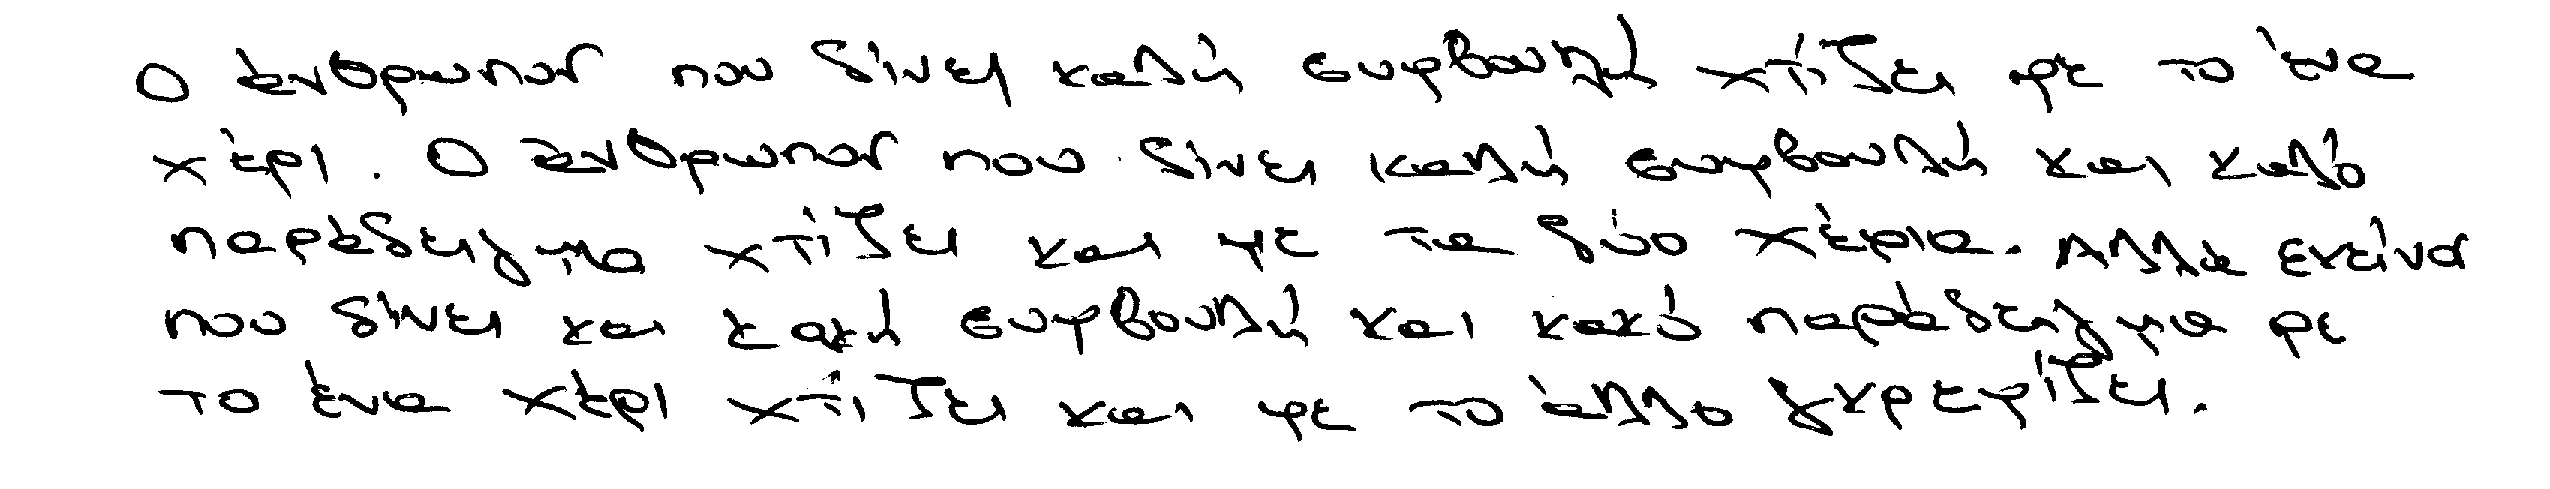 Ο άνθρωπος που δίνει καλή συμβουλή χτίζει με το ένα
χέρι. Ο άνθρωπος που δίνει καλή συμβουλή και καλό
παράδειγμα χτίζει και με τα δύο χέρια. Αλλά εκείνος
που δίνει και κακή συμβουλή και κακό παράδειγμα με
το ένα χέρι χτίζει και με το άλλο γκρεμίζει.